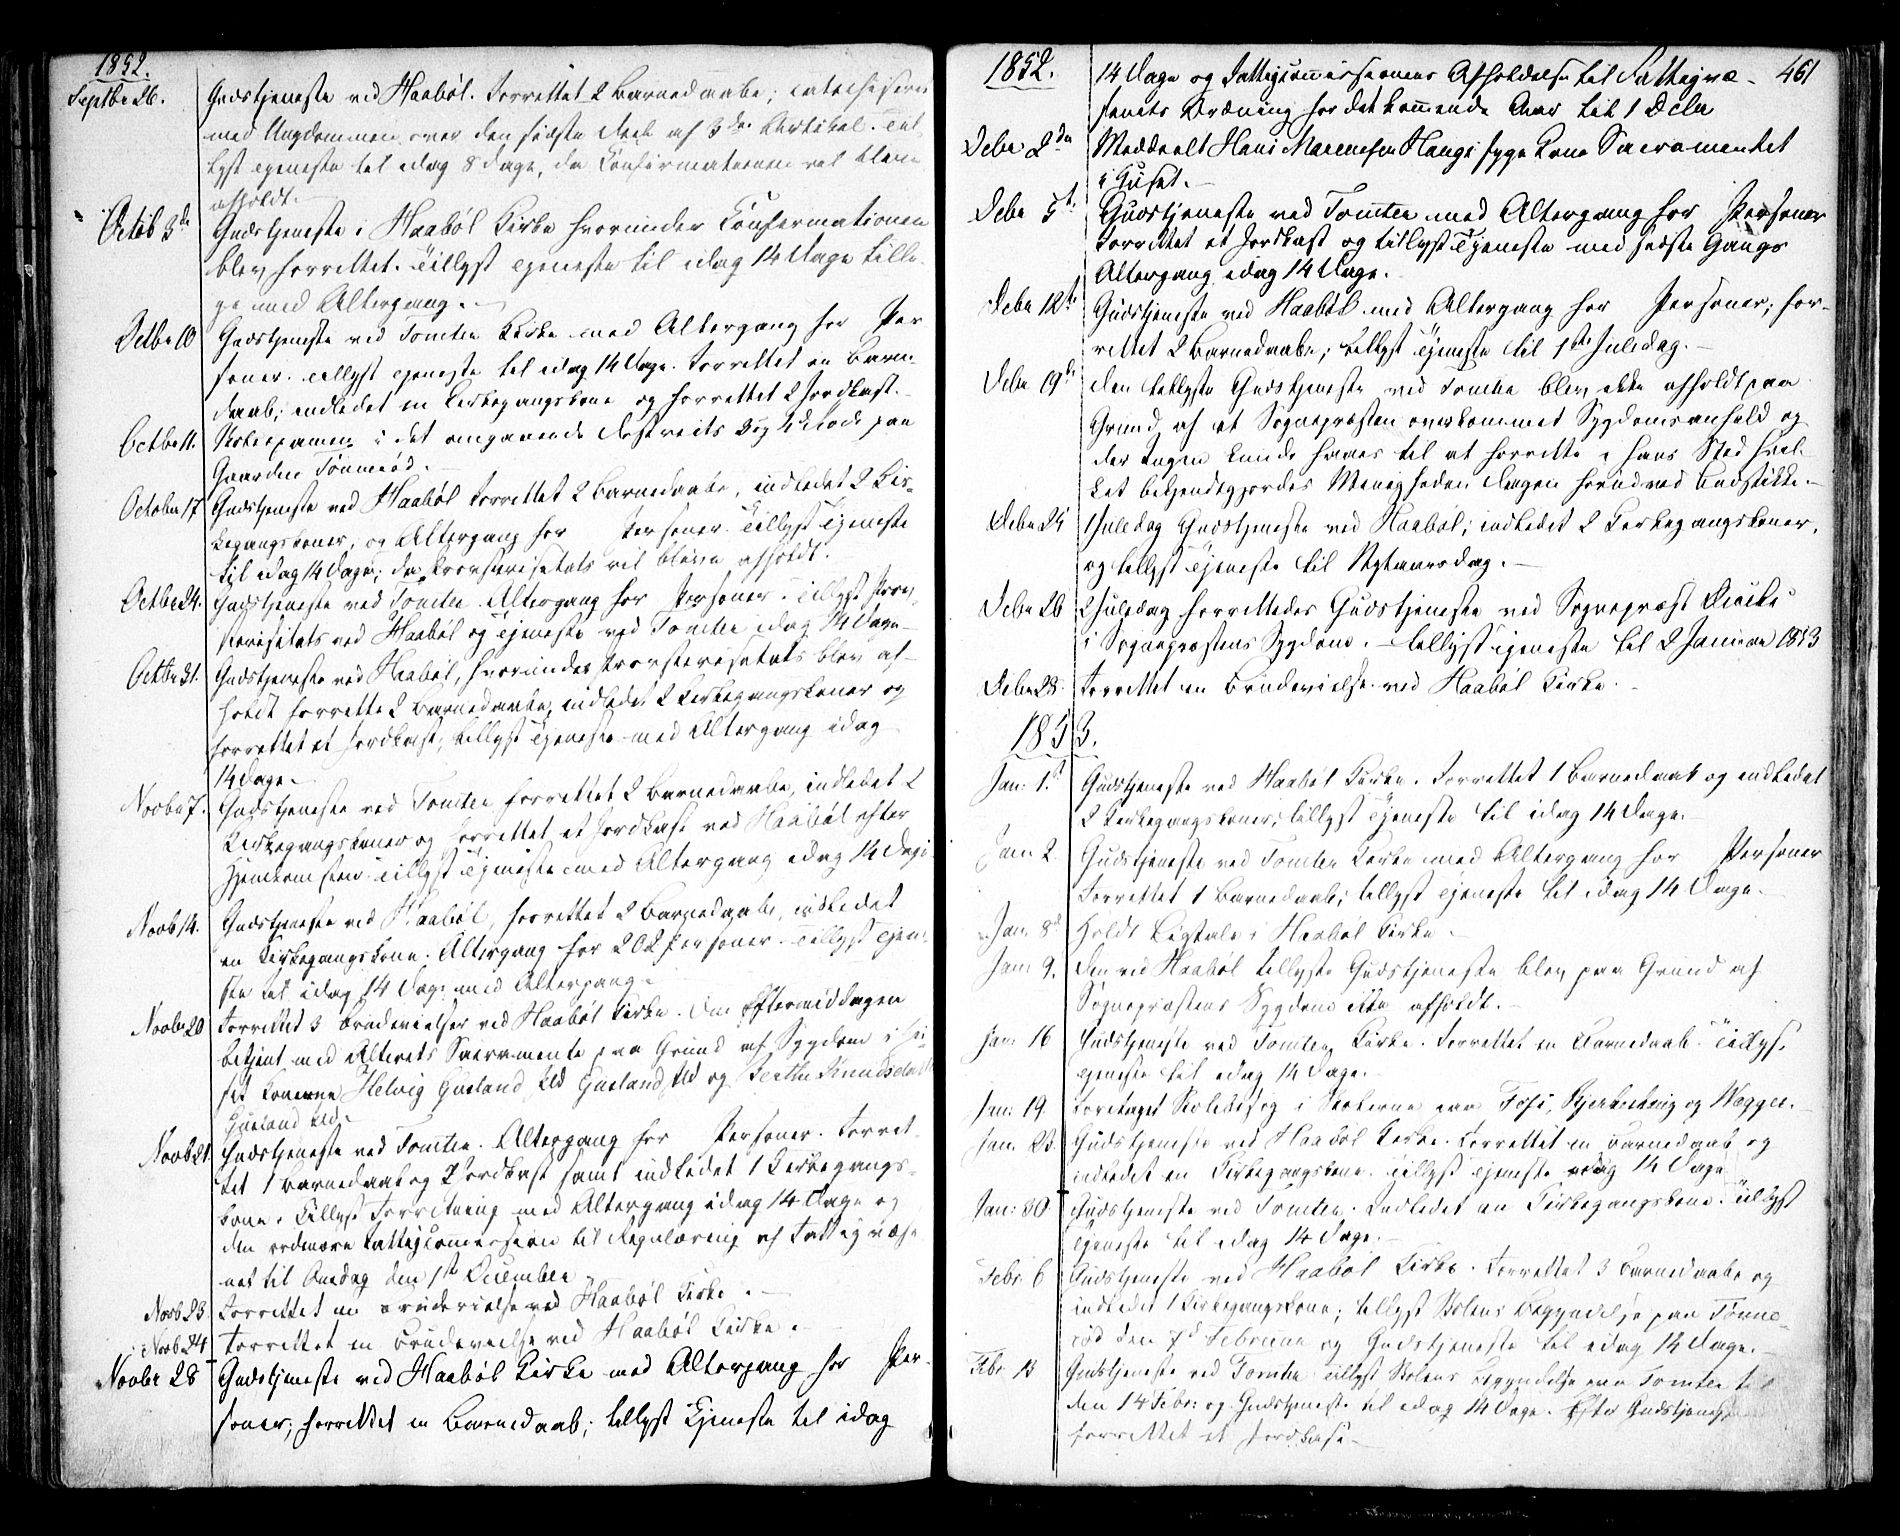 1852.
Septbr 26. Gudstjeneste ved Haabøl. Forrettet 2 Barnedaabe; catechiseret
med Ungdommen over den sidste Deel af 3die Artikel. Til-
lyst Tjeneste til idag 8 Dage, da Confirmationen vil blive
afholdt.
Octob 3die Gudstjeneste i Haabøl Kirke hvorunder Confirmationen
blev forrettet. Tillyst Tjeneste til idag 14 Dage tilli-
ge med Altergang.
Octbr 10 Gudstjeneste ved Tomter Kirke med Altergang for Per-
soner. Tillyst Tjeneste til idag 14 Dage. Forrettet en Barne-
daab; indledet en Kirkegangskone og forrettet 2 Jordkast.
Octbr 11. Skoleexamen i det omgaaende Districts 3 og 4 Rode paa
Gaarden Tønnerød.
October 17 Gudstjeneste ved Haabøl forrettet 2 Barnedaabe, indledet 2 Kir-
kegangskoner, og Altergang for Personer. Tillyst Tjeneste
til idag 14 Dage; da Provstevisitats vil blive afholdt.
Octbr 24. Gudstjeneste ved Tomter. Altergang for Personer. Tillyst Prov-
stevisitats ved Haabøl og Tjeneste ved Tomter idag 14 Dage
Octbr 31. Gudstjeneste ved Haabøl, hvorunder Provstevisitats blev af-
holdt forrettet 2 Barnedaabe, indledet 2 Kirkegangskoner og
forrettet et Jordkast; tillyst Tjeneste med Altergang idag
14 Dage.
Novbr 7. Gudstjeneste ved Tomter forrettet 2 Barnedaabe, indledet 2
Kirkegangskoner og forrettet et Jordkast ved Haabøl efter
Hjemkomsten. Tillyst Tjeneste med Altergang idag 14 Dage.
Novb 14. Gudstjeneste ved Haabøl, forrettet 2 Barnedaabe, indledet
en Kirkegangskone. Altergang for 202 Personer. Tillyst Tjene-
ste til idag 14 Dage med Altergang.
Novbr 20 Forrettet 3 Brudevielser ved Haabøl Kirke. Om Eftermiddagen
betjent med Alterets Sacramente paa Grund af Sygdom i Hu-
set Konerne Helvig Gueland Eld Gueland Eld og Berthe Knudsdatter
Gueland Eld.
Novb 21. Gudstjeneste ved Tomter. Altergang for Personer. Forret-
tet 1 Barnedaab og 2 Jordkast samt indledet 1 Kirkegangs-
kone. Tillyst Forretning med Altergang idag 14 Dage og
den ordinære Fattigcommission til Regulering af Fattigvæse-
net til Onsdag den 1st December
Novb 23 Forrettet en Brudevielse ved Haabøl Kirke.
Novb 24 Forrettet en Brudevielse ved Haabøl Kirke.
Novbr 28 Gudstjeneste ved Haabøl Kirke med Altergang for Per-
soner; forrettet en Barnedaab; tillyst Tjeneste til idag
1852. 14 Dage og Fattigcommissionens Afholdelse til Fattigvæ- 461
senets Ordning for det kommende Aar til 1 Decbr
Debr 2den Meddeelt Hans Marensen Haugs syge Kone Sacramentet
i Huset.
Debr 5t. Gudstjeneste ved Tomter med Altergang for Personer
forrettet et Jordkast og tillyst Tjeneste med sidste Gangs
Altergang idag 14 Dage.
Debr 12te Gudstjeneste ved Haabøl med Altergang for Personer; for-
rettet 2 Barnedaabe; tillyst Tjeneste til 1ste Juledag.
Debr 19de Den tillyste Gudstjeneste ved Tomter blev ikke afholdt paa
Grund af et Sognepræsten overkommet Sygdomsanfald og
der Ingen kunde haves til at forrette i hans Sted hvil-
ket bekjendtgjordes Menigheden Dagen forud ved Budstikke.
Debr 25 1 Juledag Gudstjeneste ved Haabøl; indledet 2 Kirkegangskoner,
og tillyst Tjeneste til Nytaarsdag.
Debr 26 2 Juledag forrettedes Gudstjeneste ved Sognepræst
i Sognepræstens Sygdom. tillyst Tjeneste til 2 Januar 1853
Debr 28. Forrettet en Brudevielse ved Haabøl Kirke.
1853.
Jan: 1st Gudstjeneste ved Haabøl Kirke. Forrettet 1 Barnedaab og indledet
2 Kirkegangskoner; tillyst Tjeneste til idag 14 Dage.
Jan: 2. Gudstjeneste ved Tomter Kirke med Altergang for Personer
Forrettet 1 Barnedaab; tillyst Tjeneste til idag 14 Dage.
Jan. 8d Holdt Ligtale i Haabøl Kirke.
Jan: 9. Den ved Haabøl tillyste Gudstjeneste blev paa Grund af
Sognepræstens Sygdom ikke afholdt.
Jan: 16 Gudstjeneste ved Tomter Kirke. Forrettet en Barnedaab. Tillyst
Tjeneste til idag 14 Dage.
Jan: 19. Foretaget Skolebesøg i Skolerne paa Foss, Bjerkebæk og Wegger.
Jan. 23. Gudstjeneste ved Haabøl Kirke. Forrettet en Barnedaab og
indledet en Kirkegangskone. Tillyst Tjeneste idag 14 Dage
Jan: 30. Gudstjeneste ved Tomter. Indledet en Kirkegangskone. Tillyst
Tjeneste til idag 14 Dage.
Febr: 6 Gudstjeneste ved Haabøl Kirke. Forrettet 3 Barnedaabe og
indledet 1 Kirkegangskone; tillyst Skolens Begyndelse paa Tønne-
rød den 7d Februar og Gudstjeneste til idag 14 Dage.
Febr 13 Gudstjeneste ved Tomter tillyst Skolens Begyndelse paa Tomter til
den 14 Febr: og Gudstjeneste til idag 14 Dage. Efter Gudstjenesten
forrettet et Jordkast.